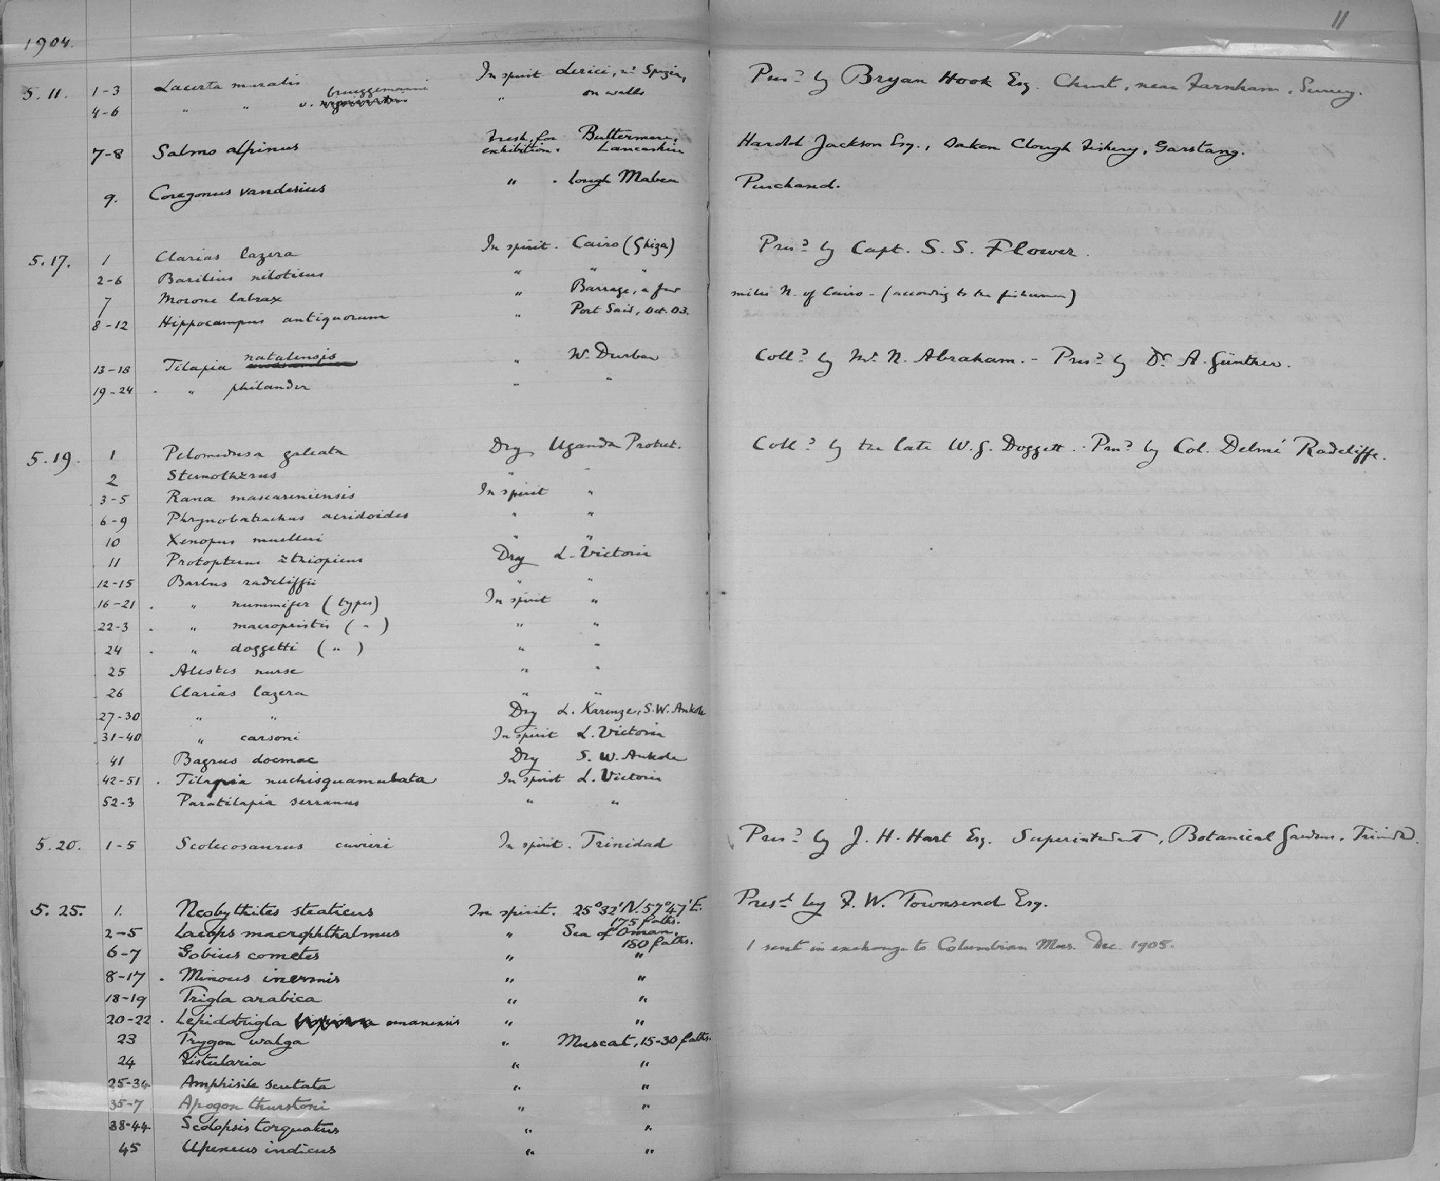 11
1904.
5.11. 1-3 Lacerta muralis In spirit Lerici, nr Spezia, Pres.d by Bryan Hook Esq. Churt, near Farnham, Surrey.
4-6 " " v. brueggemanni " on walls
7-8 Salmo alpinus Fresh, for exhibition. Buttermere, Lancashire Harold Jackson Esq., Oaken Clough Fishery, Garstang.
9. Coregonus vandesius " . Lough Maben Purchased.
5.17. 1 Clarias lazera In spirit. Cairo (Ghiza) Pres.d by Capt. S. S. Flower.
2-6 Barilius niloticus " " "
7 Morone labrax " Barrage, a few miles N. of Cairo - (according to the fishermen)
8-12 Hippocampus antiquorum " Port Said, Oct. 03.
13-18 Tilapia natalensis " Nr Durban Coll.d by Mr. N. Abraham. - Pres.d by Dr. A. Günther.
19-24 . " philander " "
5.19. 1 Pelomedusa galeata Dry Uganda Protect. Coll.d by the late W. G. Doggett. Pres.d by Col. Delmé Radcliffe.
2 Sternothærus " "
3-5 Rana mascareniensis In spirit "
6-9 Phrynobatrachus acridoides " "
10 Xenopus muelleri " "
11 Protopterus æthiopicus Dry L. Victoria
12-15 Barbus radcliffii " "
16-21 . " nummifer (types) In spirit "
22-3 . " macropristis ( " ) " "
24 . " doggetti ( " ) " "
25 Alestes nurse " "
26 Clarias lazera " "
27-30 " " Dry L. Karenge, S.W. Ankole
31-40 " carsoni In spirit L. Victoria
41 Bagrus docmac Dry S. W. Ankole
42-51 . Tilapia nuchisquamulata In spirit L. Victoria
52-3 Paratilapia serranus " "
5.20. 1-5 Scolecosaurus cuvieri In spirit. Trinidad Pres.d by J. H. Hart Esq. Superintendent, Botanical Gardens, Trinidad.
5.25. 1. Neobythites steaticus In spirit. 25°32'N. 57°47'E. 175 faths. Pres.d by F. W. Townsend Esq.
2-5 Laeops macrophthalmus " Sea of Oman, 180 faths. 1 sent in exchange to Columbian Mus. Dec. 1905.
6-7 Gobius cometes " "
8-17 . Minous inermis " "
18-19 Trigla arabica " "
20-22 . Lepidotrigla omanensis " "
23 Trygon walga " Muscat, 15-30 faths.
24 Fistularia " "
25-34 Amphisile scutata " "
35-7 Apogon thurstoni " "
38-44 Scolopsis torquatus " "
45 Upeneus indicus " "